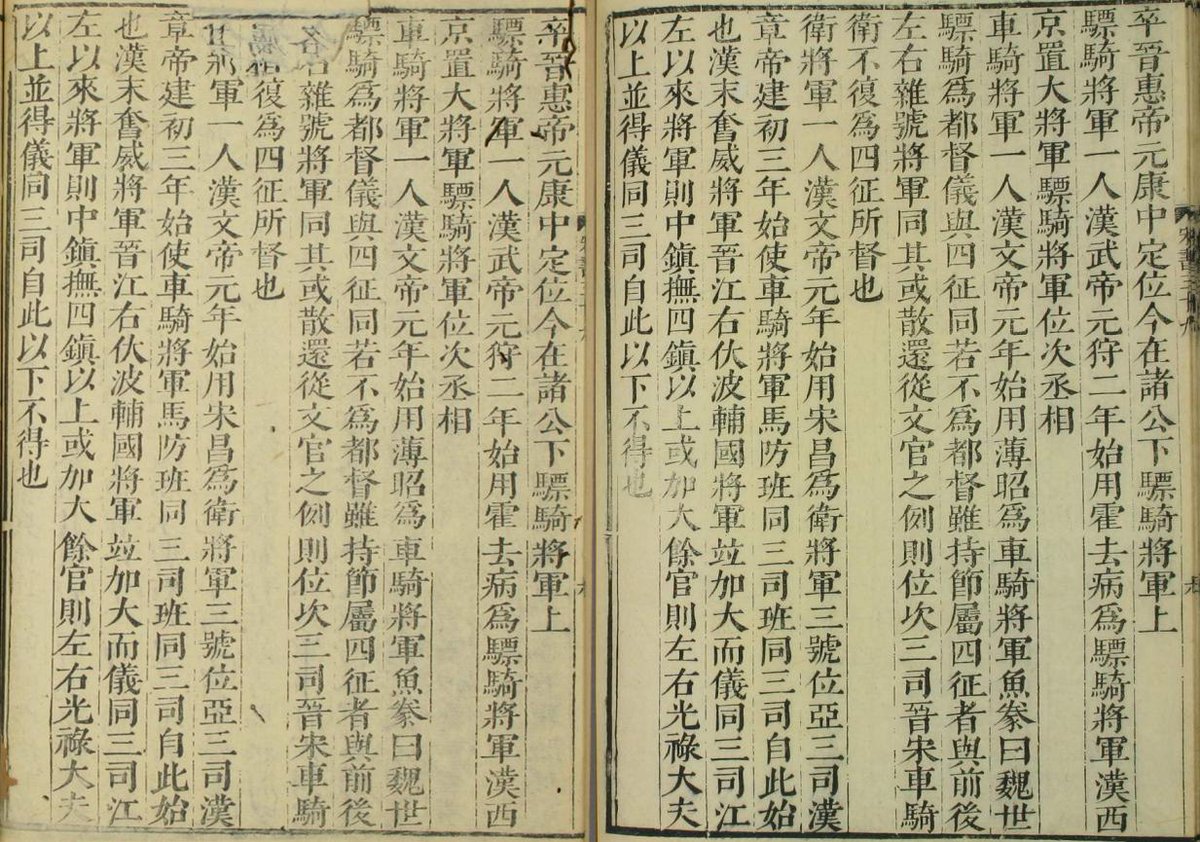 卒晉惠帝元康中定位今在諸公下驃騎將軍上
驃騎將軍一人漢武帝元狩二年始用霍去病爲驃騎將軍漢西
京置大將軍驃騎將軍位次丞相
車騎將軍一人漢文帝元年始用薄昭爲車騎將軍魚豢曰魏世
驃騎爲都督儀與四征同若不爲都督雖持節屬四征者與前後
左右雜號將軍同其或散還從文官之例則位次三司晉宋車騎
衛不復爲四征所督也
衛將軍一人漢文帝元年始用宋昌爲衛將軍三號位亞三司漢
章帝建初三年始使車騎將軍馬防班同三司班同三司自此始
也漢末奮威將軍晉江右伏波輔國將軍竝加大而儀同三司江
左以來將軍則中鎮撫四鎮以上或加大餘官則左右光祿大夫
以上並得儀同三司自此以下不得也
卒晉惠帝元康中定位今在諸公下驃騎將軍上
驃騎將軍一人漢武帝元狩二年始用霍去病爲驃騎將軍漢西
京置大將軍驃騎將軍位次丞相
車騎將軍一人漢文帝元年始用薄昭爲車騎將軍魚豢曰魏世
驃騎爲都督儀與四征同若不爲都督雖持節屬四征者與前後
右雜號將軍同其或散還從文官之例則位次三司晉宋車騎
復爲四征所督也
將軍一人漢文帝元年始用宋昌爲衛將軍三號位亞三司漢
章帝建初三年始使車騎將軍馬防班同三司班同三司自此始
也漢末奮威將軍晉江右伏波輔國將軍竝加大而儀同三司江
左以來將軍則中鎮撫四鎮以上或加大餘官則左右光祿大夫
以上並得儀同三司自此以下不得也